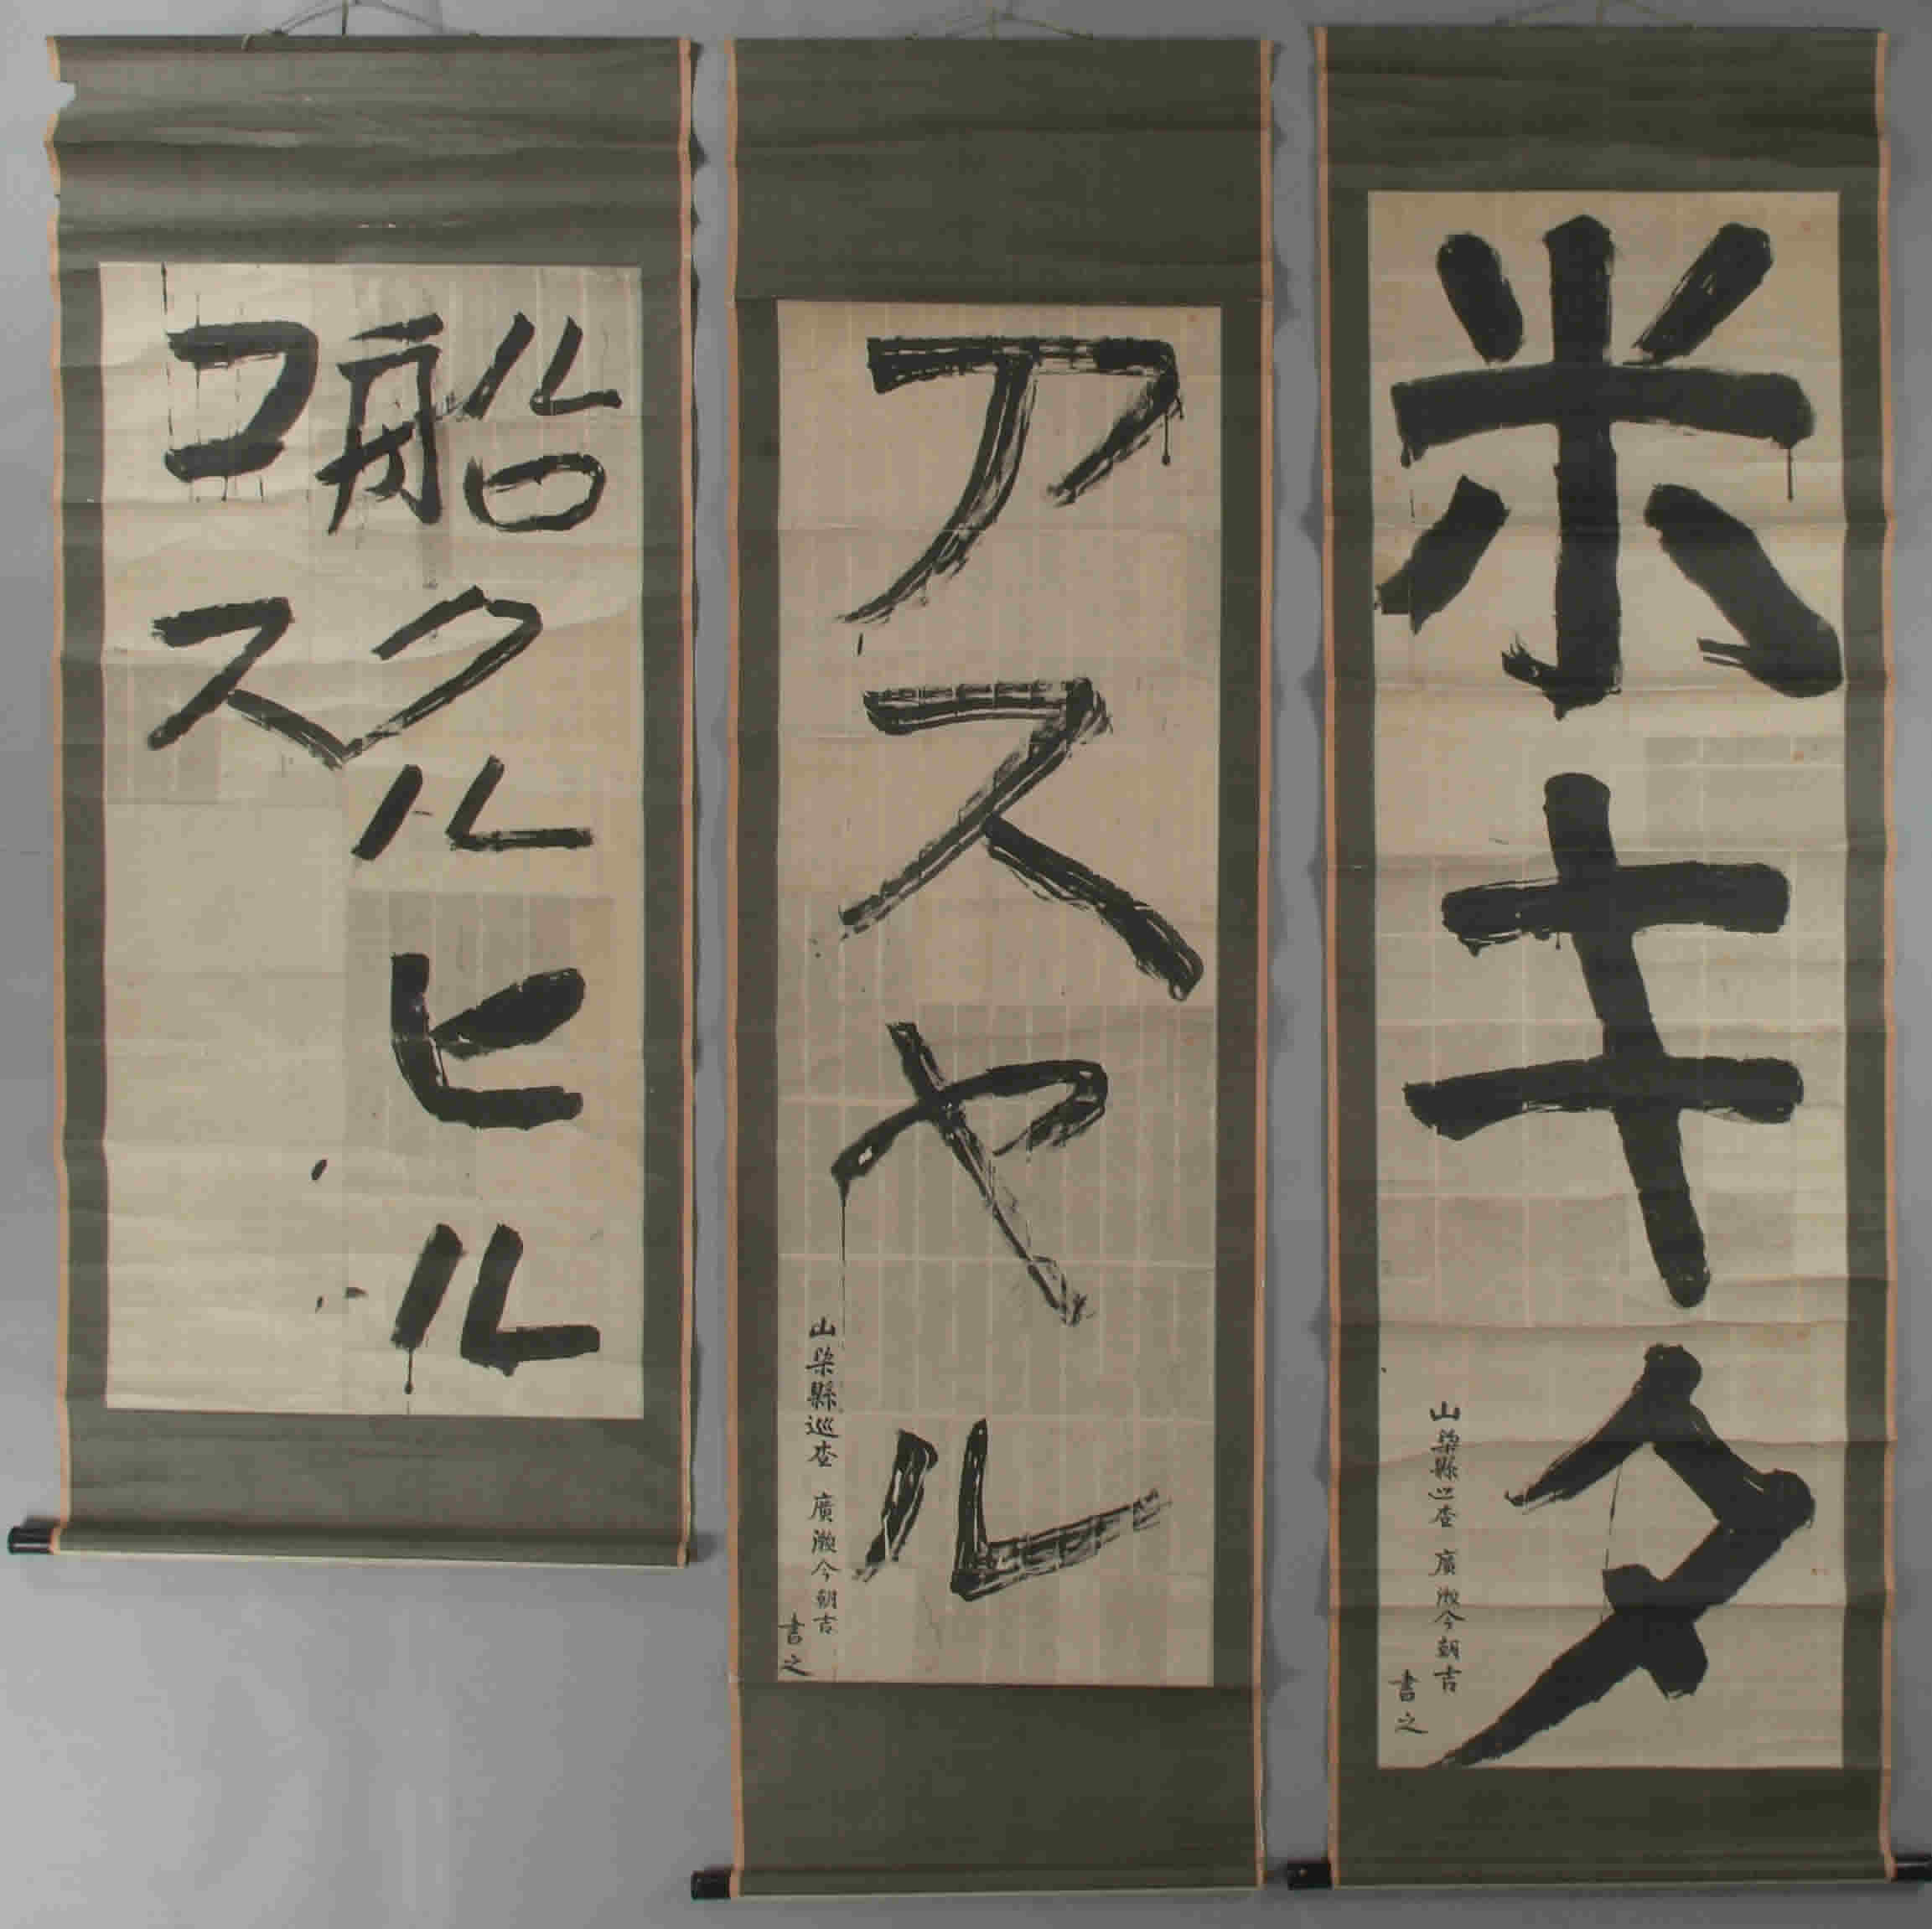 米キタ
山梨縣巡査 廣瀬今朝吉
書之
アスヤル
山梨縣巡査 廣瀬今朝吉
書之
船クルヒル
コス